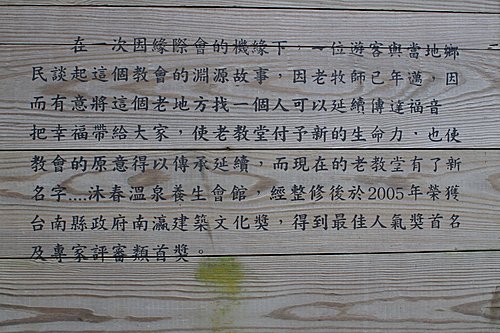 在一次因緣際會的機緣下，一位遊客與當地鄉
民談起這個教會的淵源故事，因老牧師已年邁，因
而有意將這個老地方找一個人可以延續傳達福音
把幸福帶給大家，使老教堂付予新的生命力，也使
教會的原意得以傳承延續，而現在的老教堂有了新
名字....沐春溫泉養生會館，經整修後於2005年榮獲
台南縣政府南瀛建築文化獎，得到最佳人氣獎首名
及專家評審類首獎。